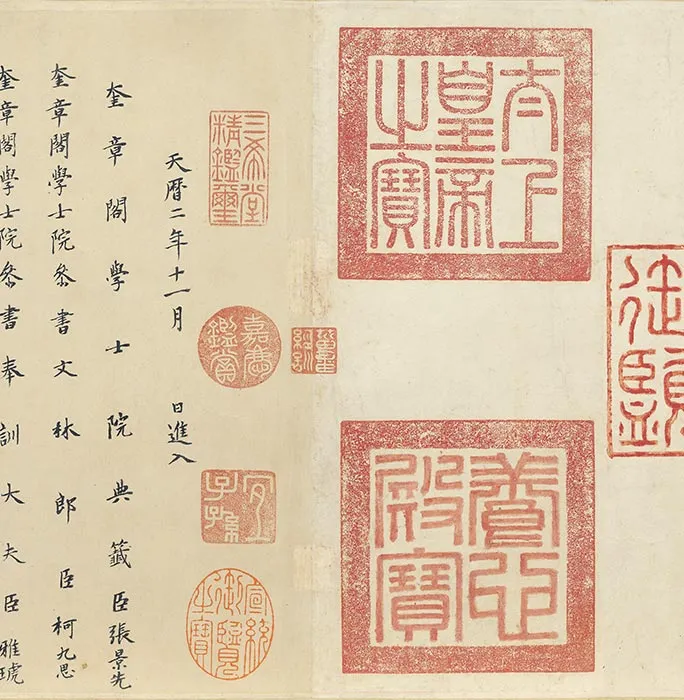 太上
皇帝
之寶
養心
殿寶
三希堂
精鑑璽
嘉慶
鑑賞
宜
子孫
宣統
御覽
之寶
天曆二年十一月 日進入
奎章閣學士院典籤臣張景先
奎章閣學士院叅書文林郎臣柯九思
奎章閣學士院叅書奉訓大夫臣雅琥